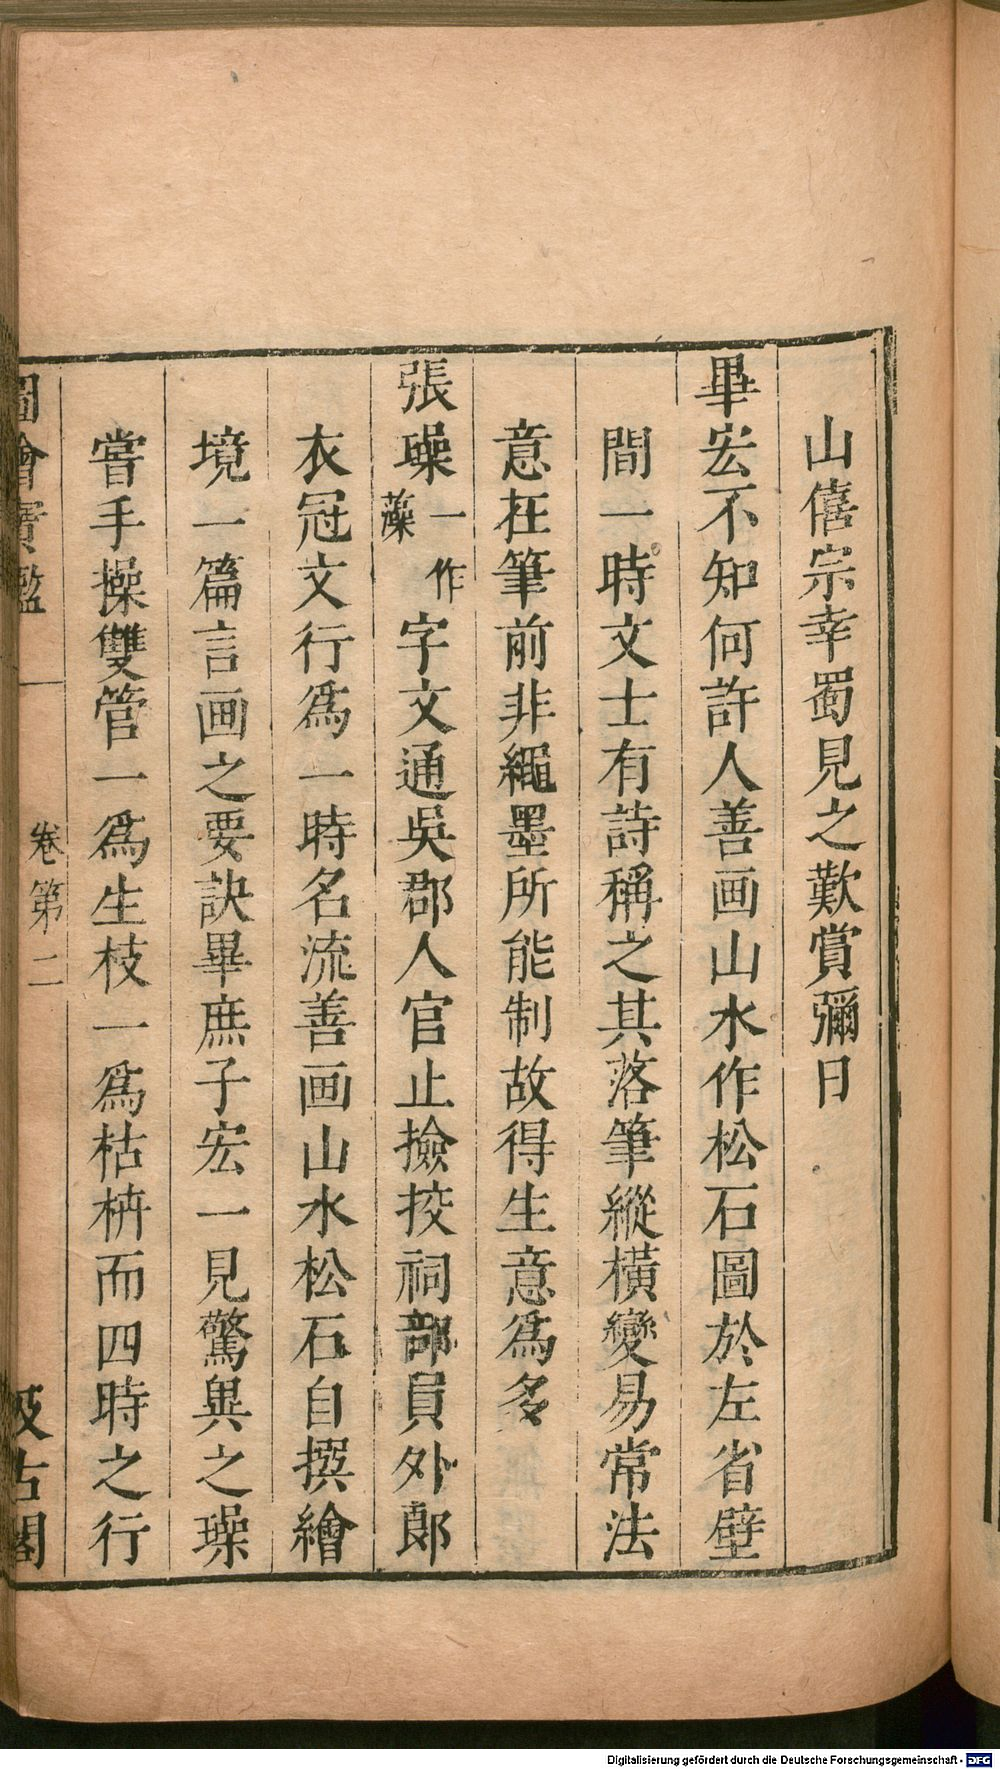 山僖宗幸蜀見之歎賞彌日
畢宏不知何許人善画山水作松石圖於左省壁
間一時文士有詩稱之其落筆縱橫變易常法
意在筆前非繩墨所能制故得生意為多
張璪一作藻字文通吳郡人官止撿挍祠部員外郎
衣冠文行爲一時名流善画山水松石自撰繪
境一篇言画之要訣畢庶子宏一見驚異之璪
嘗手操雙管一爲生枝一爲枯枿而四時之行
圖繪寶鑑 卷第二 汲古閣
Digitalisierung gefördert durch die Deutsche Forschungsgemeinschaft - DFG